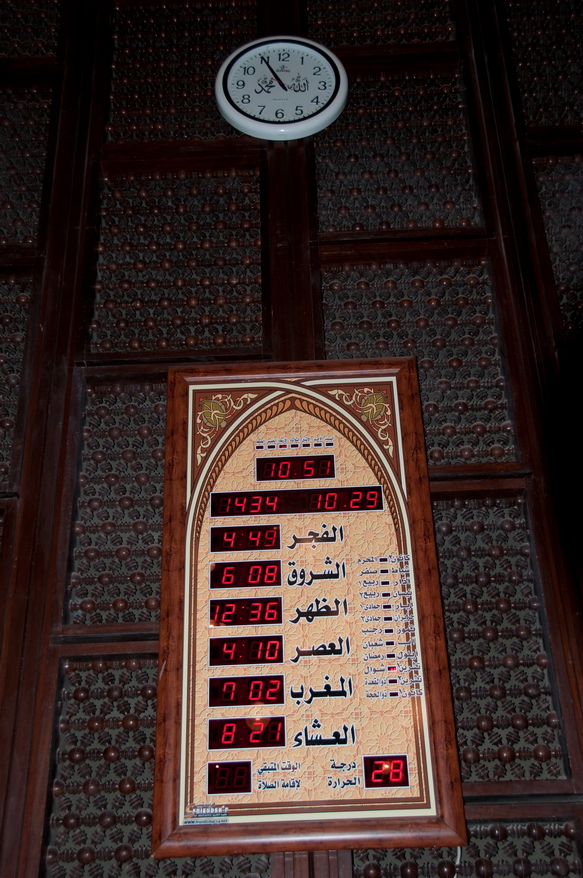 12
11 1
10 2
الله محمد
9 3
8 4
7 5
6
10:51
1434 10.29
الفجر 4:49
الشروق 6:08
الظهر 12:36
العصر 4:10
المغرب 7:02
العشاء 8:21
المحرم
صفر
ربيع١
ربيع٢
جمادى١
جمادى٢
رجب
شعبان
رمضان
شوال
ذوالقعدة
ذوالحجة
درجة الحرارة 28
الوقت المتبقي
لإقامة الصلاة